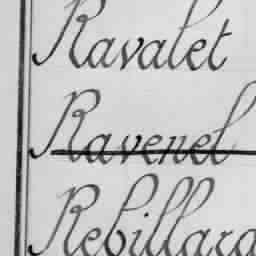 Ravalet
Ravenel
Rebillard